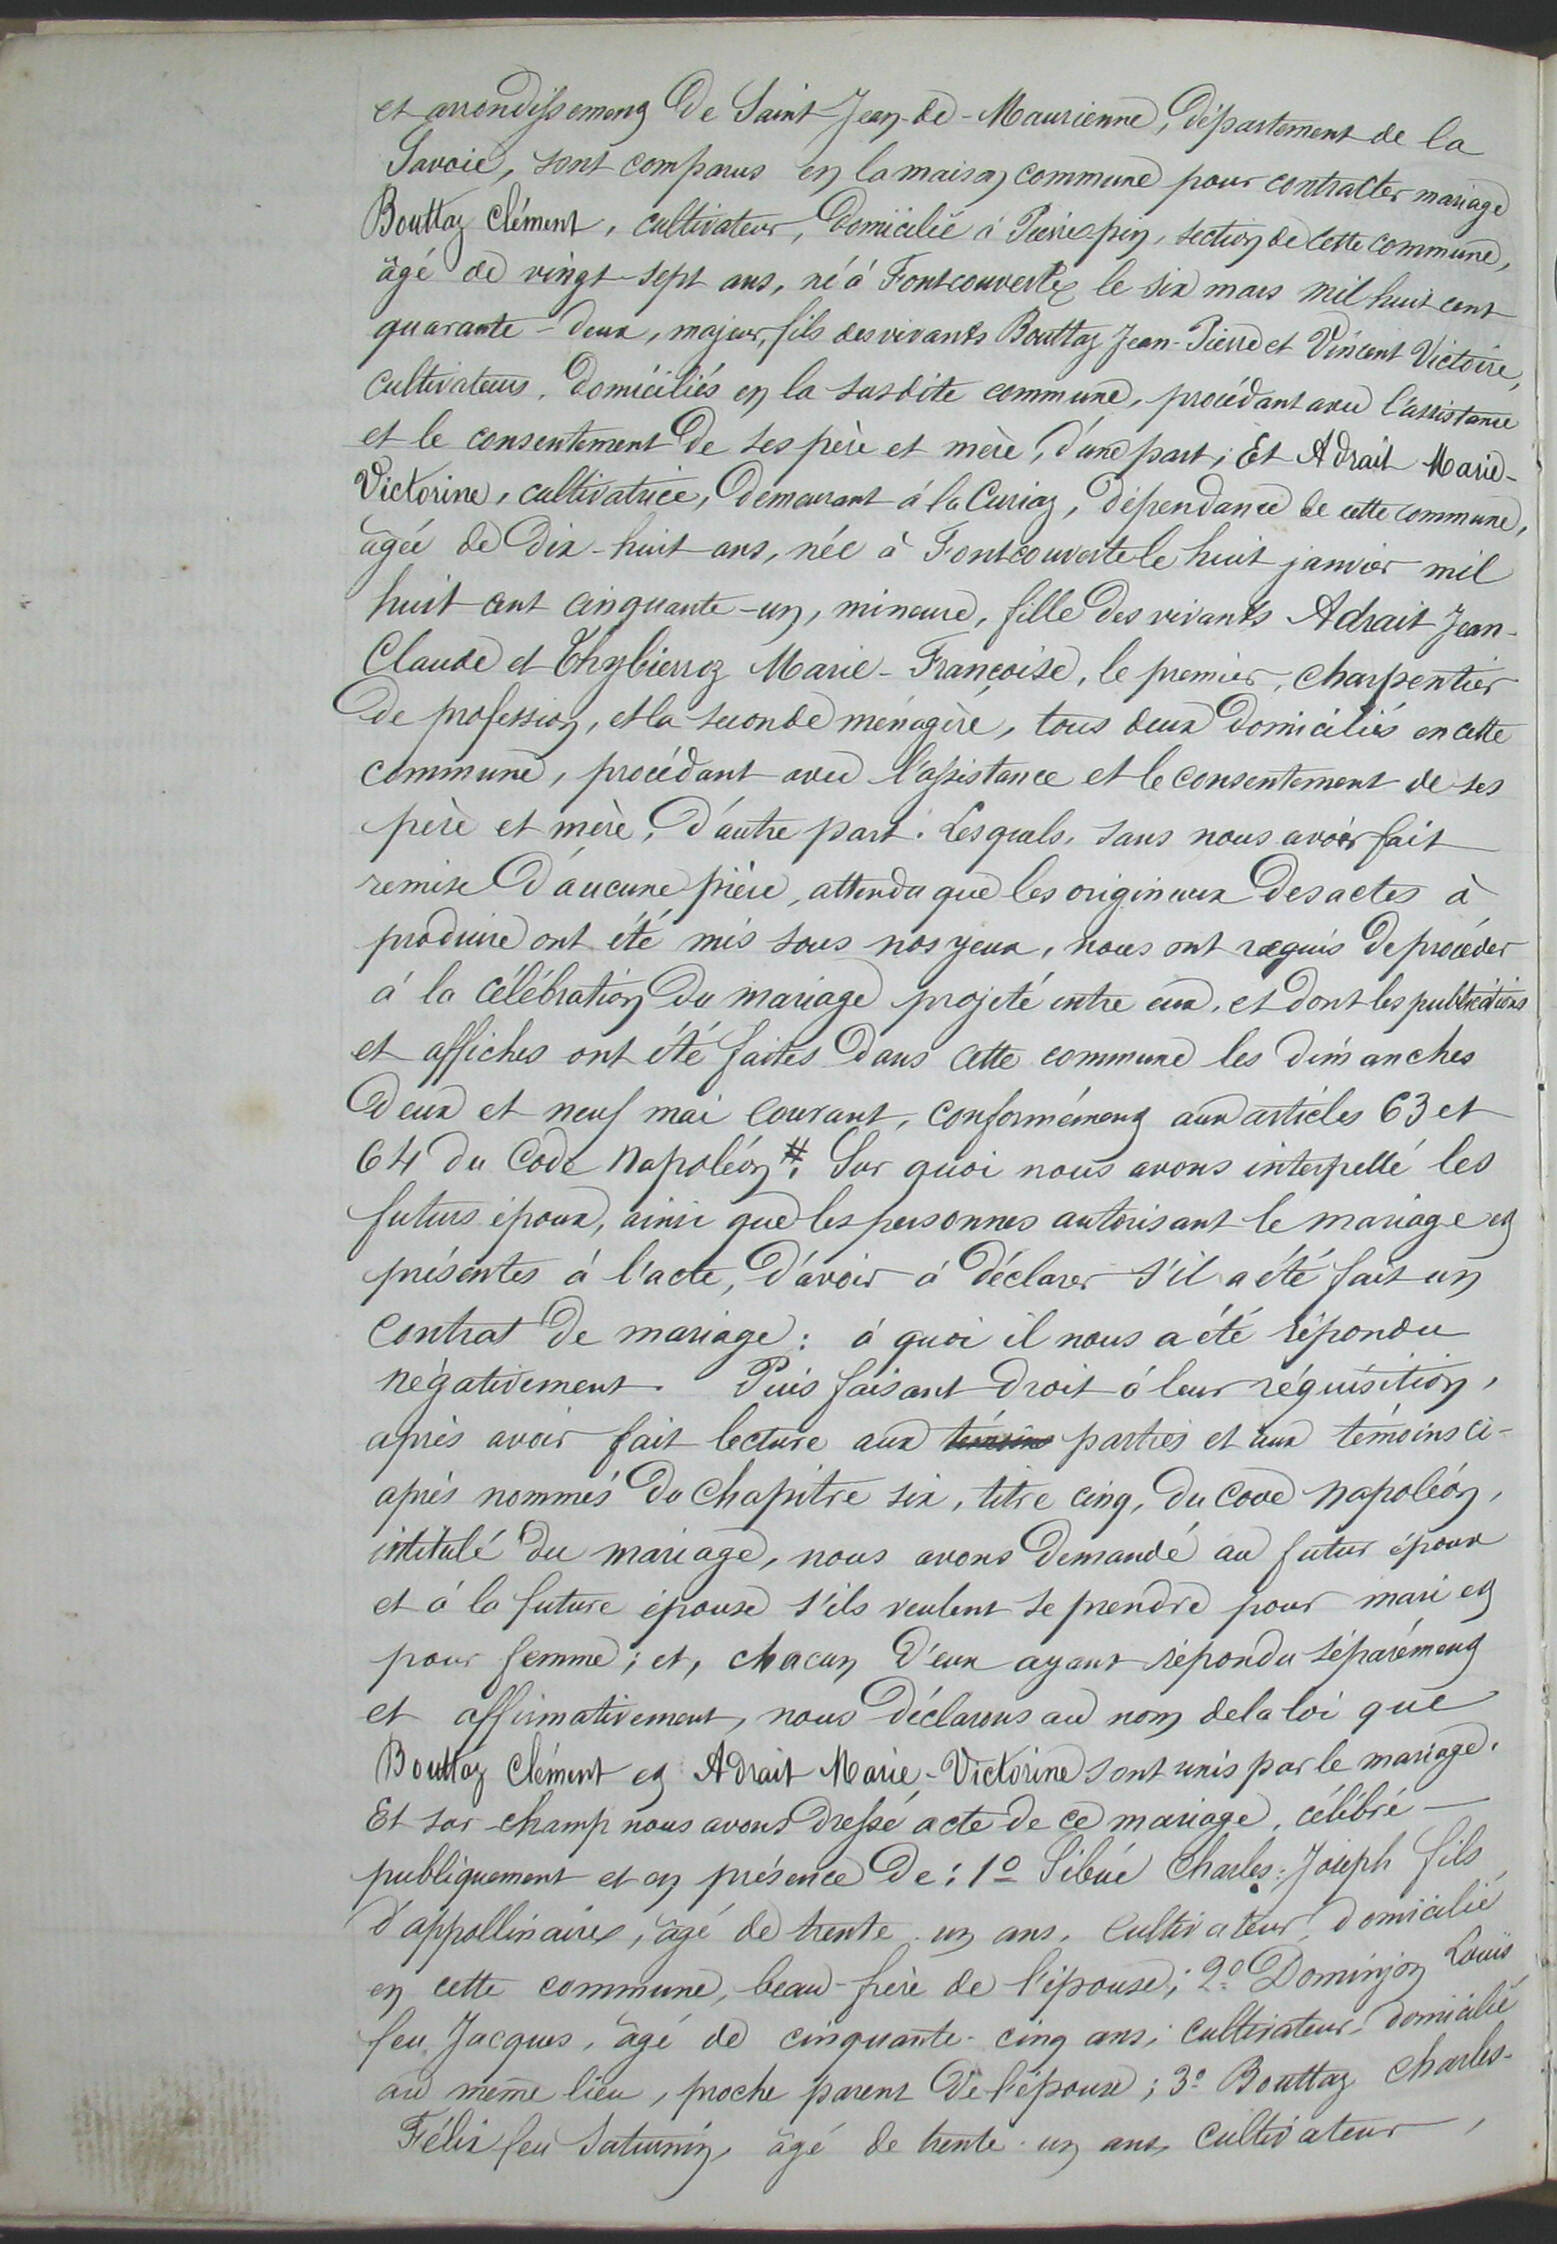 et arrondissement de Saint-Jean-de-Maurienne, département de la
Savoie, sont comparus en la maison commune pour contracter mariage
Bouttaz Clément, cultivateur, domicilié à Pierrepin, section de cette commune,
âgé de vingt-sept ans, né à Fontcouverte le six mars mil huit cent
quarante-deux, majeur, fils des vivants Bouttaz Jean-Pierre et Vincent Victoire,
cultivateurs, domiciliés en la susdite commune, procédant avec l'assistance
et le consentement de ses père et mère, d'une part; Et Adrait Marie-
Victorine, cultivatrice, demeurant à la Curiaz, dépendance de cette commune,
âgée de dix-huit ans, née à Fontcouverte le huit janvier mil
huit cent cinquante-un, mineure, fille des vivants Adrait Jean-
Claude et Thybierroz Marie-Françoise, le premier, charpentier
de profession, et la seconde ménagère, tous deux domiciliés en cette
commune, procédant avec l'assistance et le consentement de ses
père et mère, d'autre part. Lesquels, sans nous avoir fait
remise d'aucune pièce, attendu que les origineaux des actes à
produire ont été mis sous nos yeux, nous ont requis de procéder
à la célébration du mariage projeté entre eux, et dont les publications
et affiches ont été faites dans cette commune les dimanches
deux et neuf mai courant, conformément aux articles 63 et
64 du Code Napoléon #. Sur quoi nous avons interpellé les
futurs époux, ainsi que les personnes autorisant le mariage et
présentes à l'acte, d'avoir à déclarer s'il a été fait un
contrat de mariage: à quoi il nous a été répondu
négativement. Puis faisant droit à leur réquisition,
après avoir fait lecture aux témoins parties et aux témoins ci-
après nommés du chapitre six, titre cinq, du code Napoléon,
intitulé du mariage, nous avons demandé au futur époux
et à la future épouse s'ils veulent se prendre pour mari et
pour femme; et, chacun d'eux ayant répondu séparément
et affirmativement, nous déclarons au nom de la loi que
Bouttaz Clément et Adrait Marie-Victorine sont unis par le mariage.
Et sur-champ nous avons dressé acte de ce mariage, célébré
publiquement et en présence de: 1º Sibué Charles-Joseph fils
d'appollinaire, âgé de trente-un ans, cultivateur, domicilié
en cette commune, beau-frère de l'épouse; 2º Dominjon Louis
feu Jacques, âgé de cinquante-cinq ans, cultivateur, domicilié
au même lieu, proche parent de l'épouse; 3º Bouttaz Charles-
Félix feu Saturnin, âgé de trente-un ans, cultivateur,